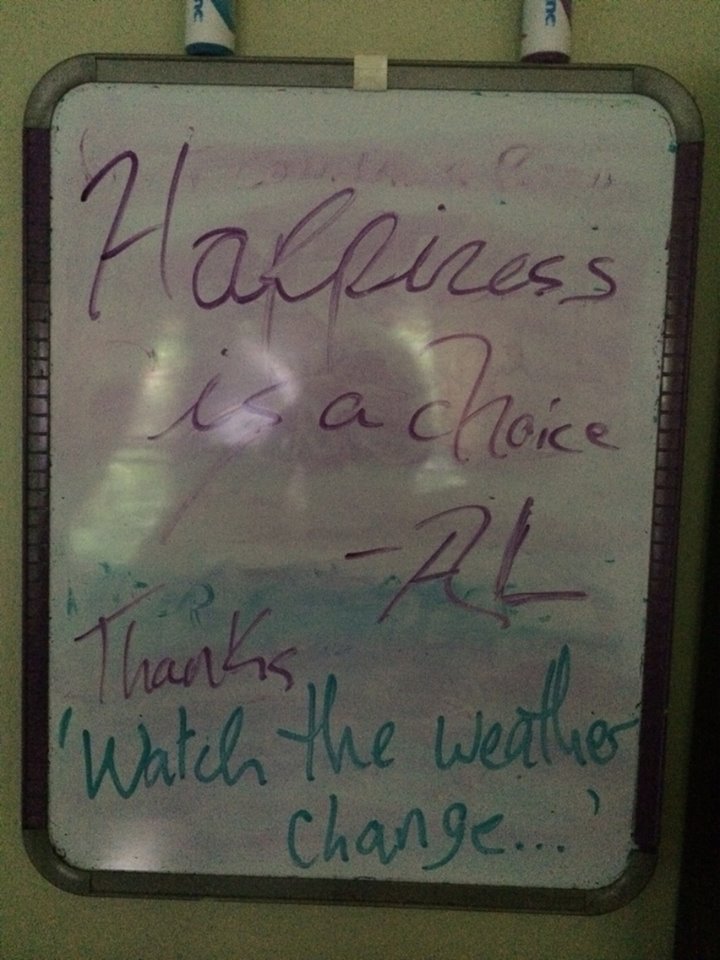 Happiness
is a choice
- AL
Thanks
'Watch the weather
change...'